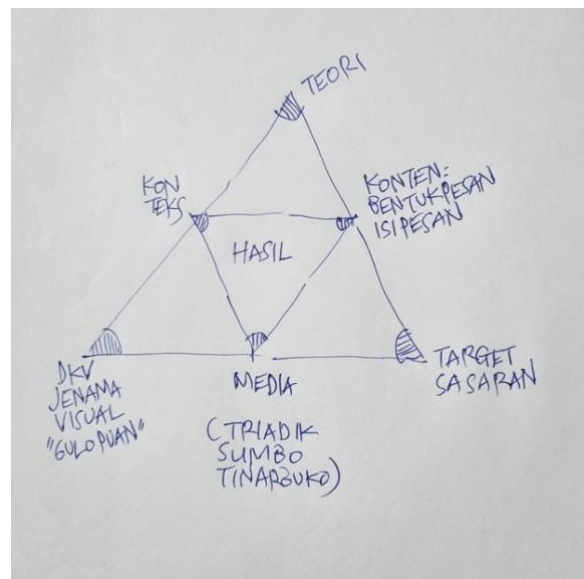 TEORI
KON
TEKS
KONTEN:
BENTUK PESAN
ISI PESAN
HASIL
DKV
JENAMA
VISUAL
"GULO PUAN"
MEDIA
TARGET
SASARAN
(TRIADIK
SUMBO
TINARBUKO)